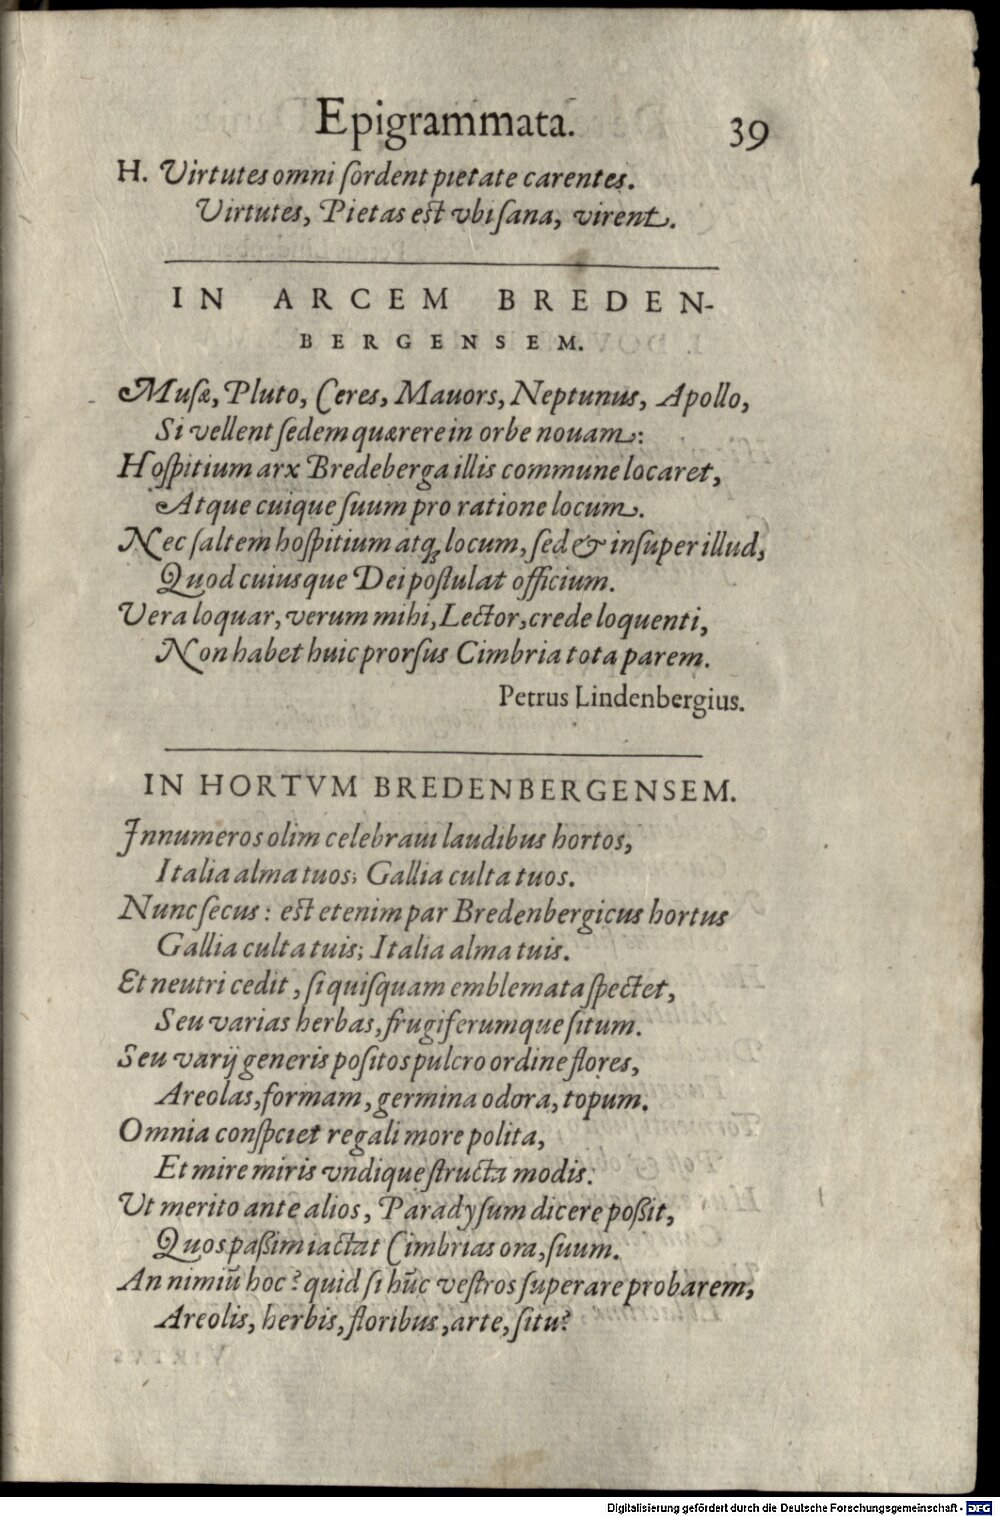 Epigrammata. 39
H. Virtutes omni ſordent pietate carentes.
Virtutes, Pietas eſt vbi ſana, virent.
IN ARCEM BREDEN-
BERGENSEM.
Muſæ, Pluto, Ceres, Mavors, Neptunus, Apollo,
Si vellent ſedem quærere in orbe novam:
Hoſpitium arx Bredeberga illis commune locaret,
Atque cuique ſuum pro ratione locum.
Nec ſaltem hoſpitium atq; locum, ſed & inſuper illud,
Quod cuiusque Dei poſtulat officium.
Vera loquar, verum mihi, Lector, crede loquenti,
Non habet huic prorſus Cimbria tota parem.
Petrus Lindenbergius.
IN HORTVM BREDENBERGENSEM.
Innumeros olim celebravi laudibus hortos,
Italia alma tuos; Gallia culta tuos.
Nunc ſecus: eſt etenim par Bredenbergicus hortus
Gallia culta tuis; Italia alma tuis.
Et neutri cedit, ſi quiſquam emblemata ſpectet,
Seu varias herbas, frugiferumque ſitum.
Seu varij generis poſitos pulcro ordine flores,
Areolas, formam, germina odora, topum.
Omnia conſpciet regali more polita,
Et mire miris vndique ſtructa modis:
Ut merito ante alios, Paradyſum dicere poßit,
Quos paßim iactat Cimbrias ora, ſuum.
An nimiū hoc? quid ſi hūc veſtros ſuperare probarem,
Areolis, herbis, floribus, arte, ſitu?
Digitalisierung gefördert durch die Deutsche Forschungsgemeinschaft - DFG